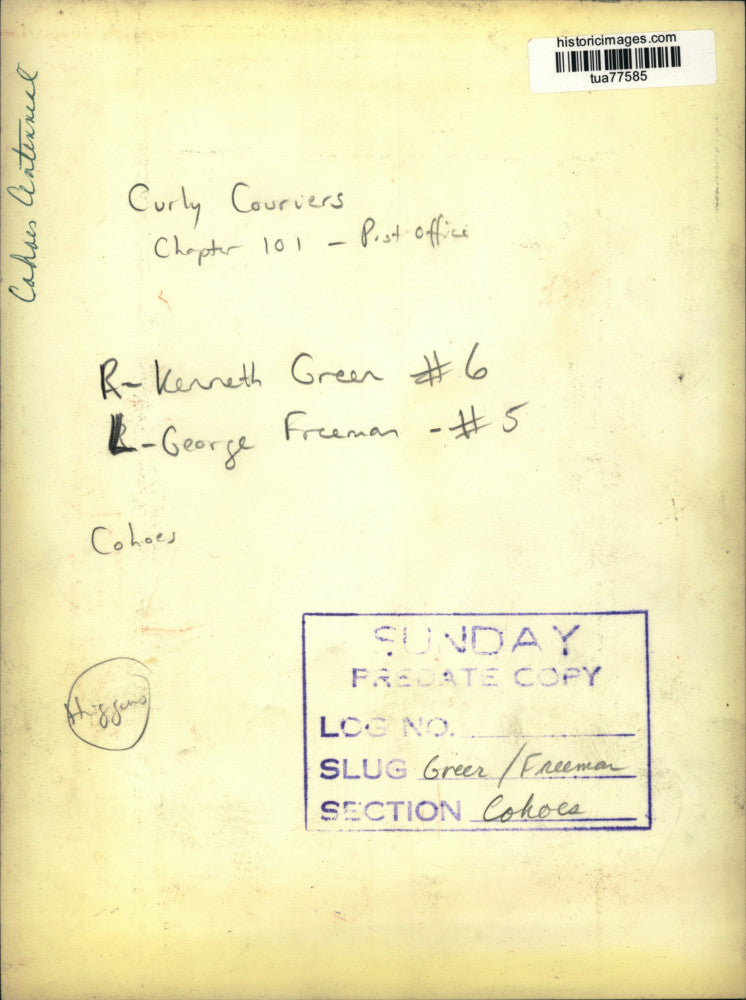 historicimages.com
tua77585
Cohoes Centennial
Curly Couriers
Chapter 101 - Post office
R- Kenneth Green #6
L-George Freeman - #5
Cohoes
Higgins
SUNDAY
PREDATE COPY
LOG NO.
SLUG Green / Freeman
SECTION Cohoes